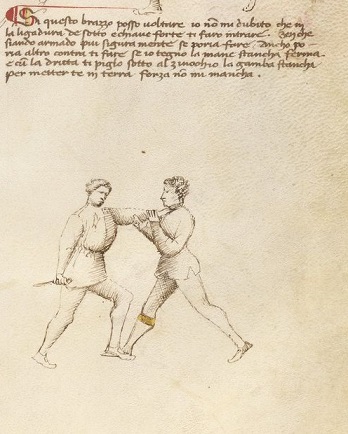 In questo brazo posso voltare io non mi dubito che in
la ligadura de sotto e chiave forte ti faro intrare. Ben che
siando armado piu sigura mente se poria fare. Ancho po-
ria altro contra ti fare se io tegno la mane stancha ferma
e cum la dritta ti piglo sotto al zinochio la gamba stancha
per metter te in terra forza non mi mancha.